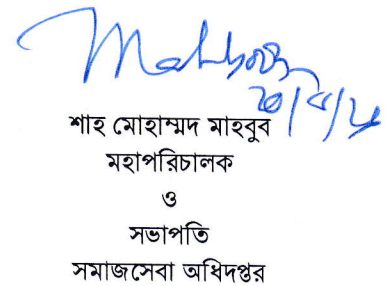 Mahbub
শাহ মোহাম্মদ মাহবুব
মহাপরিচালক
ও
সভাপতি
সমাজসেবা অধিদপ্তর